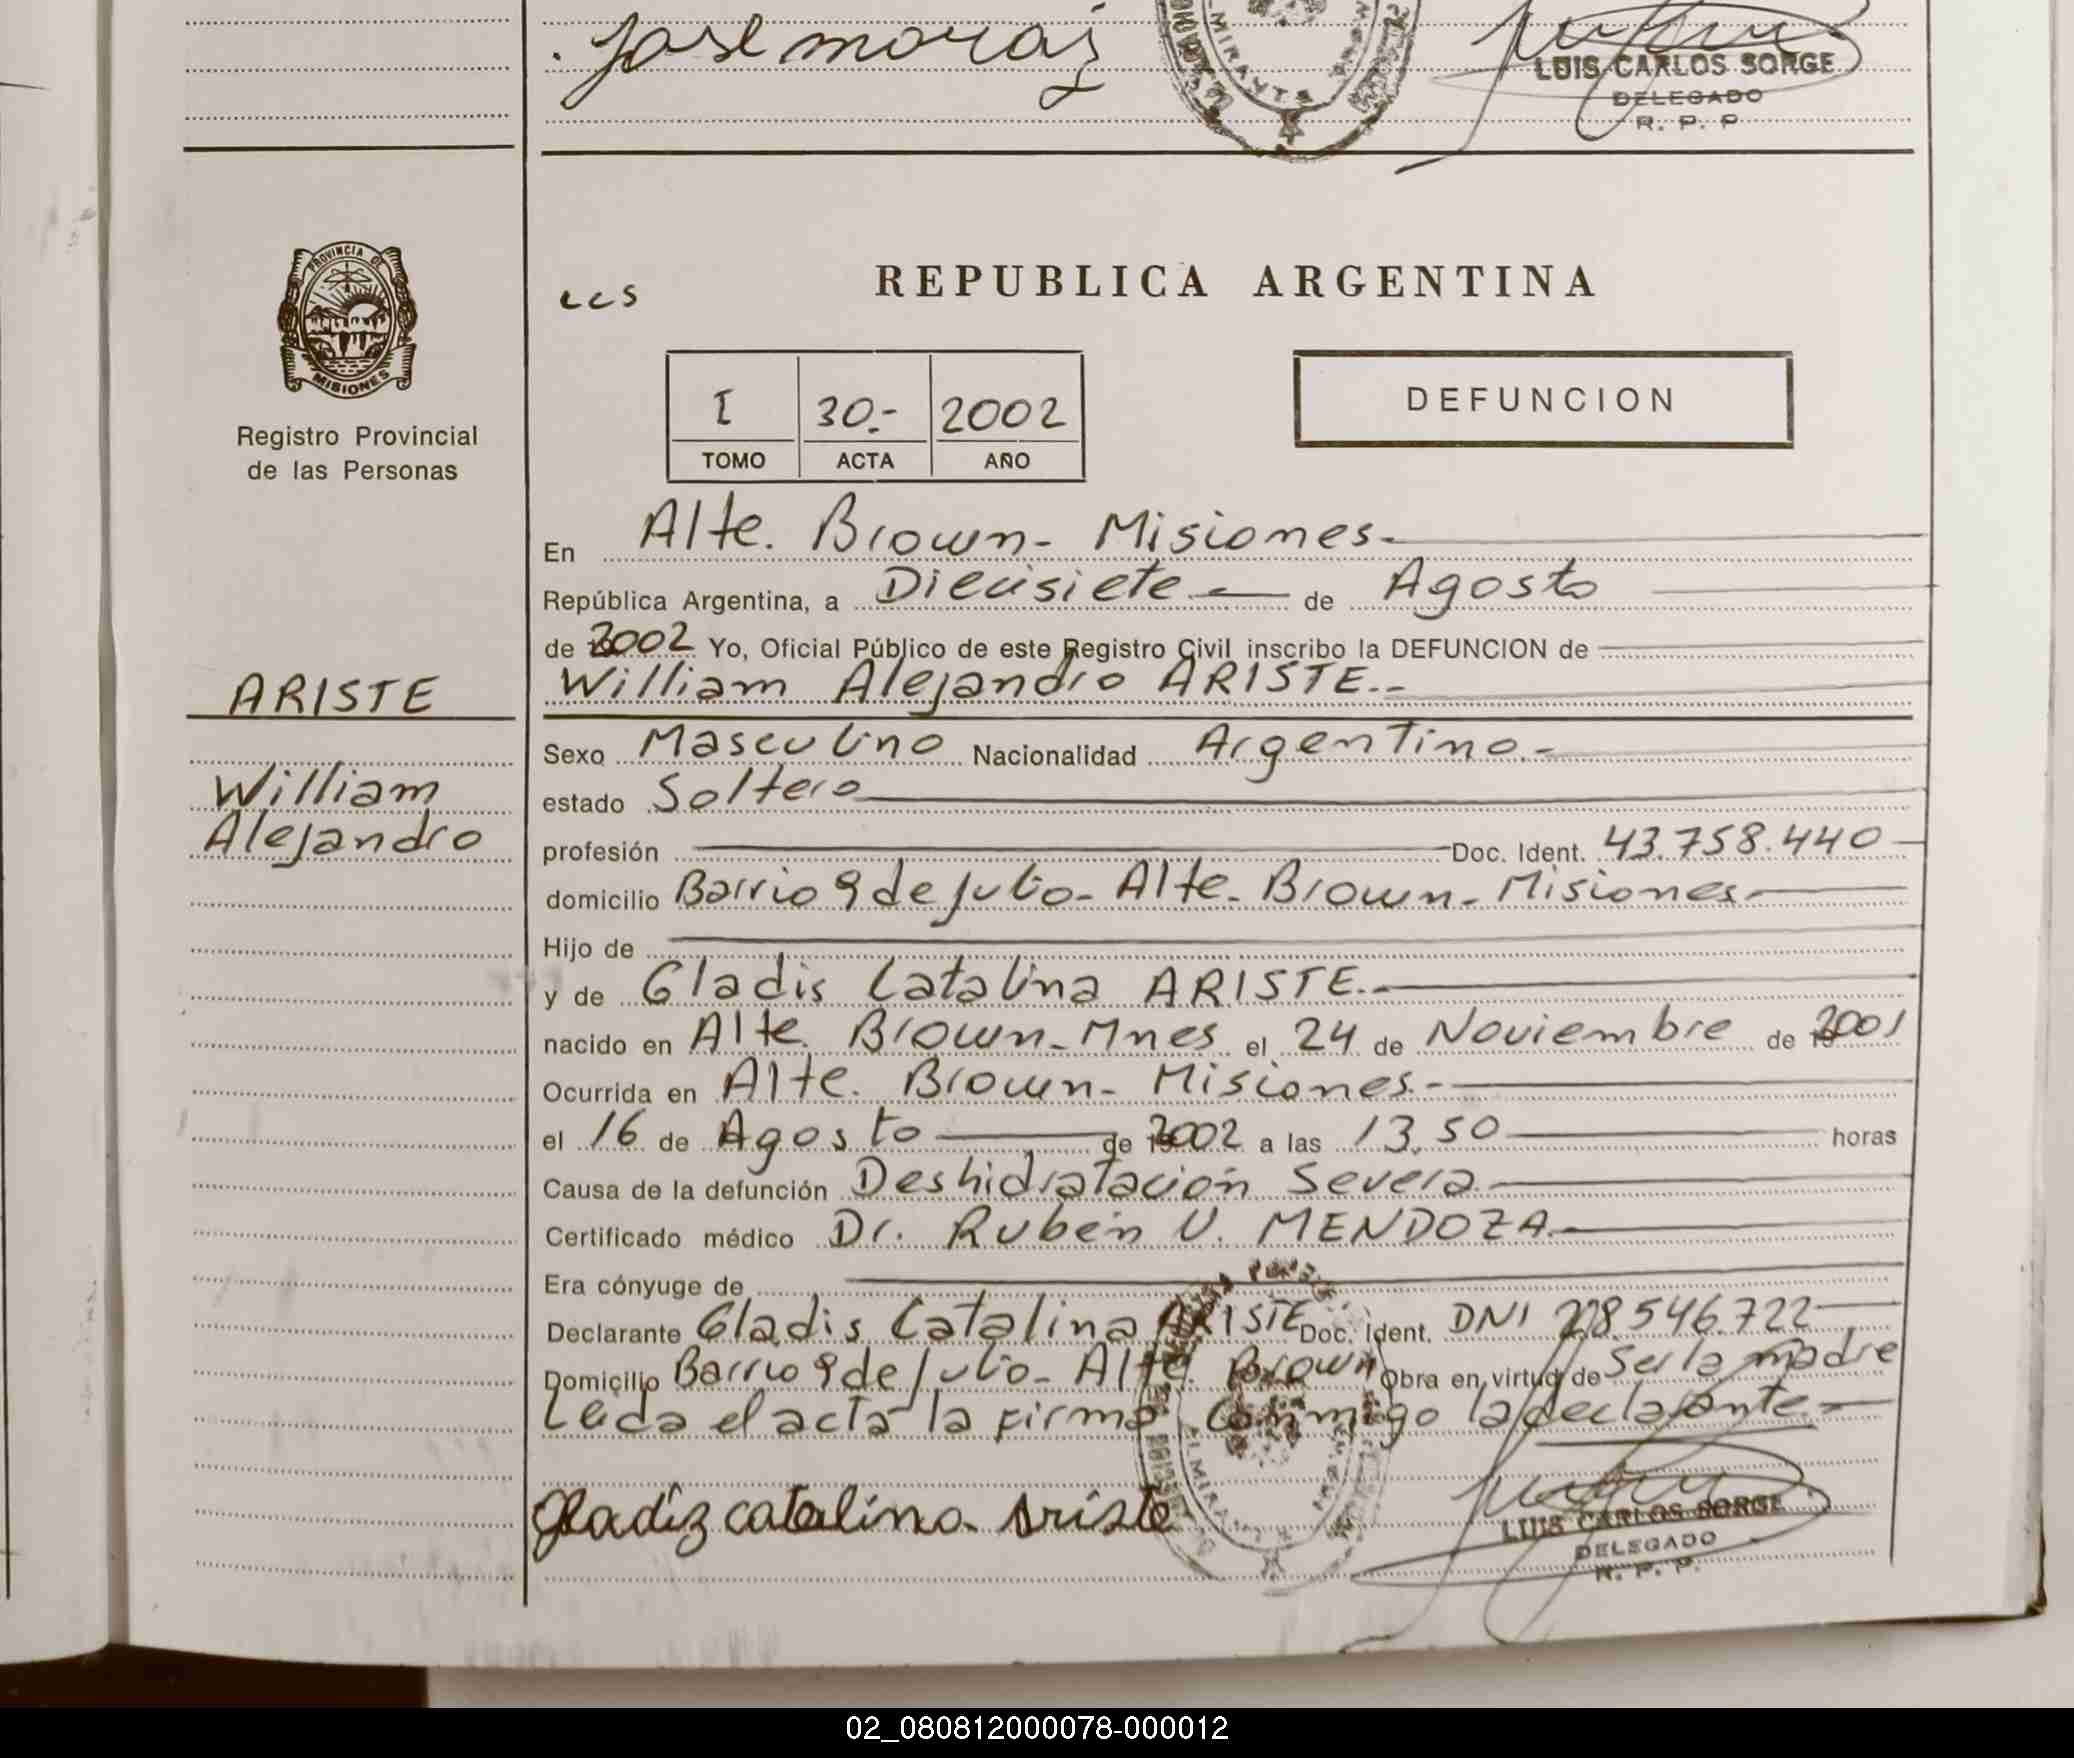 Jose moraiz
LUIS CARLOS SORGE
DELEGADO
R. P. P
PROVINCIA DE
MISIONES
Registro Provincial
de las Personas
LCS
REPUBLICA ARGENTINA
I 30.- 2002
TOMO ACTA AÑO
DEFUNCION
En Alte. Brown - Misiones.
República Argentina, a Diecisiete de Agosto
de 2002 Yo, Oficial Público de este Registro Civil inscribo la DEFUNCION de
ARISTE
William Alejandro ARISTE.-
Sexo Masculino Nacionalidad Argentino.-
William
estado Soltero
Alejandro
profesión Doc. Ident. 43.758.440
domicilio Barrio 9 de Julio - Alte. Brown - Misiones
Hijo de
y de Gladis Catalina ARISTE.
nacido en Alte. Brown - Mnes el 24 de Noviembre de 2001
Ocurrida en Alte. Brown - Misiones.-
el 16 de Agosto de 2002 a las 13.50 horas
Causa de la defunción Deshidratación Severa
Certificado médico Dr. Rubén V. MENDOZA
Era cónyuge de
Declarante Gladis Catalina ARISTE Doc. Ident. DNI 28.546.722
Domicilio Barrio 9 de Julio - Alte. Brown Obra en virtud de Ser la madre
Leida el acta la firma conmigo la declarante.-
gladiz catalina ariste
LUIS CARLOS SORGE
DELEGADO
R. P. P.
02_080812000078-000012